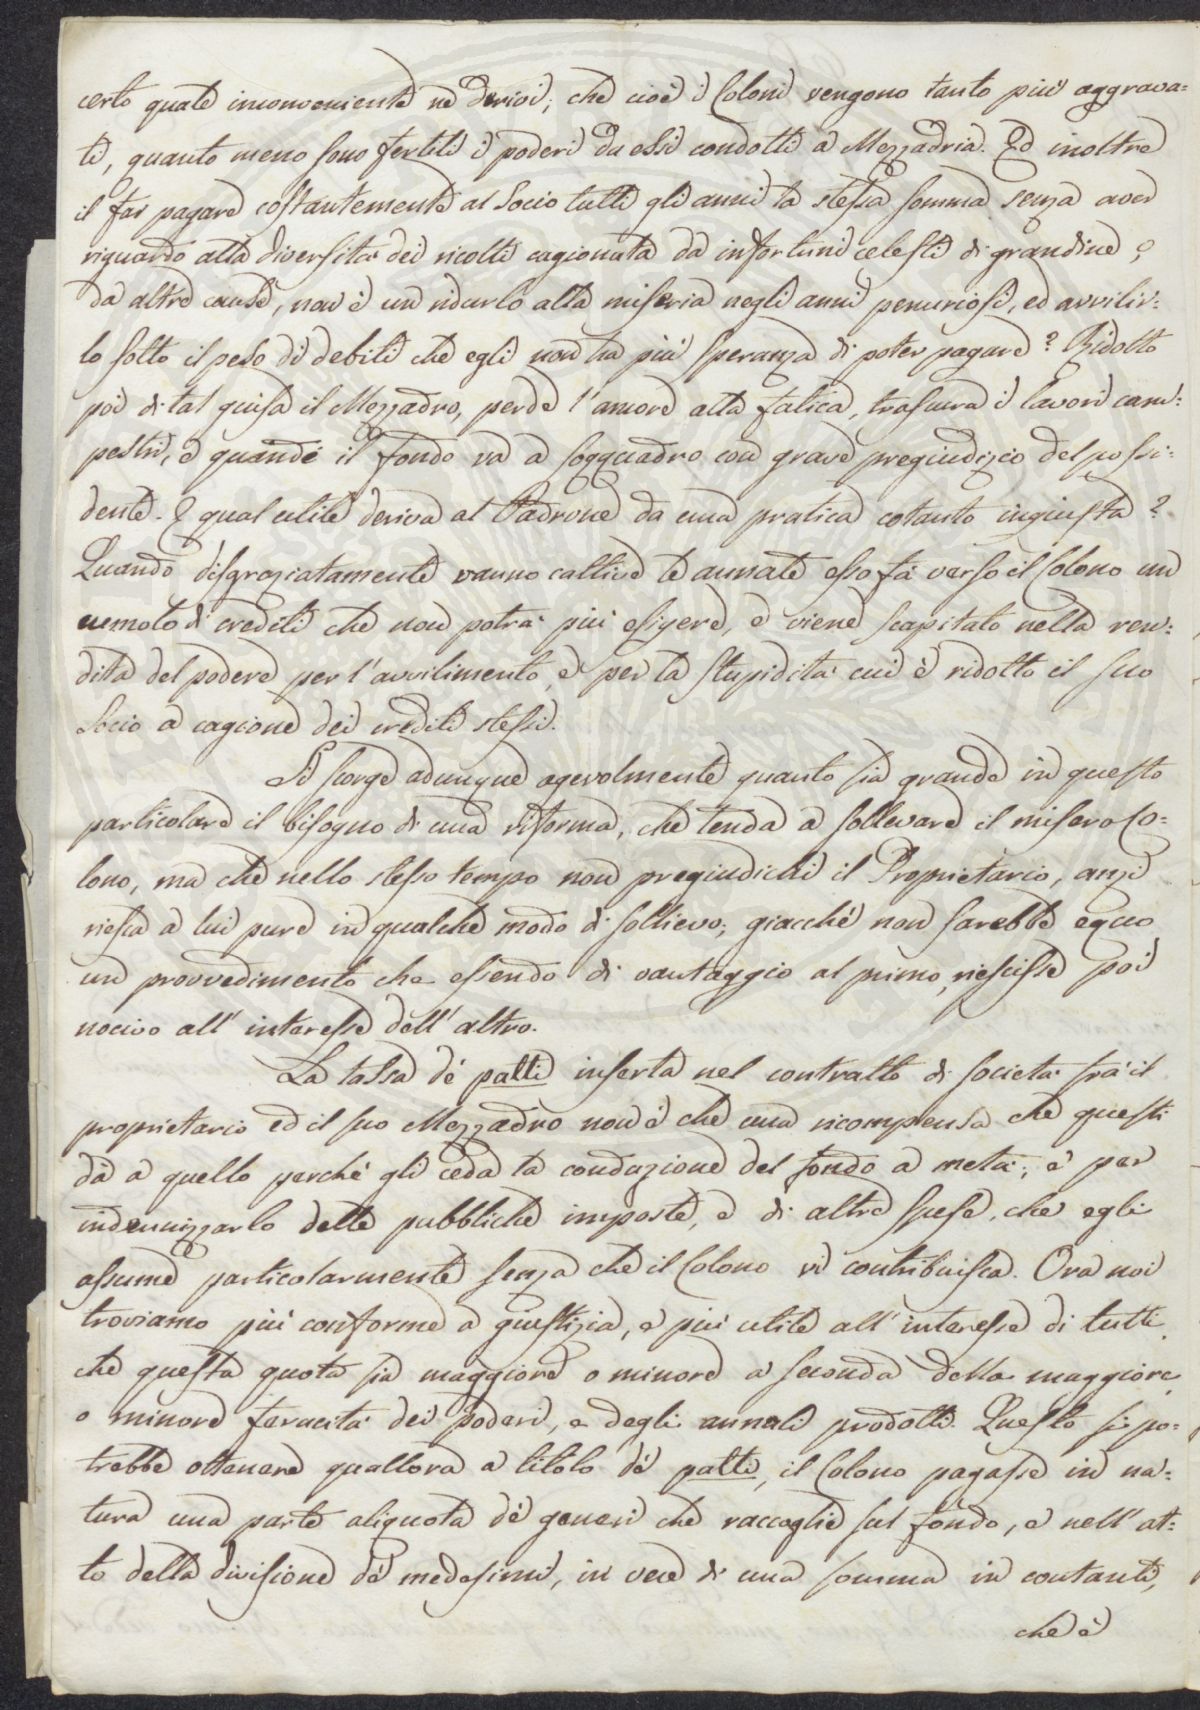 certo quale inconveniente ne derivi; che cioè i Coloni vengono tanto più aggrava=
ti, quanto meno sono fertili i poderi da essi condotti a Mezzadria. Ed inoltre
il far pagare costantemente al Socio tutti gli anni la stessa somma senza aver
riguardo alla diversità dei ricolti cagionata da infortuni celesti di grandine, o
da altre cause, non è un ridurlo alla miseria negli anni penuriosi, ed avvilir=
lo sotto il peso di debiti che egli non ha più speranza di poter pagare? Ridotto
poi di tal guisa il Mezzadro, perde l'amore alla fatica, trascura i lavori cam=
pestri, e quindi il fondo va a soqquadro con grave pregiudizio del possi=
dente. E qual utile deriva al Padrone da una pratica cotanto ingiusta?
Quando disgraziatamente vanno cattive le annate esso fà verso il Colono un
cumolo di crediti che non potrà più esigere, e viene scapitato nella ren=
dita del podere per l'avvilimento, e per la stupidità cui è ridotto il suo
Socio a cagione dei crediti stessi.
Si scorge adunque agevolmente quanto sia grande in questo
particolare il bisogno di una riforma, che tenda a sollevare il misero Co=
lono, ma che nello stesso tempo non pregiudichi il Proprietario, anzi
riesca a lui pure in qualche modo di sollievo; giacché non sarebbe equo
un provvedimento che essendo di vantaggio al primo, riescisse poi
nocivo all'interesse dell'altro.
La tassa de' patti inserta nel contratto di società frà il
proprietario ed il suo Mezzadro non è che una ricompensa che questi
dà a quello perché gli ceda la conduzione del fondo a metà; e per
indennizzarlo delle pubbliche imposte, e di altre spese, che egli
assume particolarmente senza che il Colono vi contribuisca. Ora noi
troviamo più conforme a giustizia, e più utile all'interesse di tutti
che questa quota sia maggiore o minore a seconda della maggiore,
o minore feracità dei poderi, e degli annuali prodotti. Questo si po=
trebbe ottenere quallora a titolo de' patti, il Colono pagasse in na=
tura una parte aliquota de' generi che raccoglie sul fondo, e nell'at=
to della divisione de' medesimi, in vece di una somma in contanti,
che è